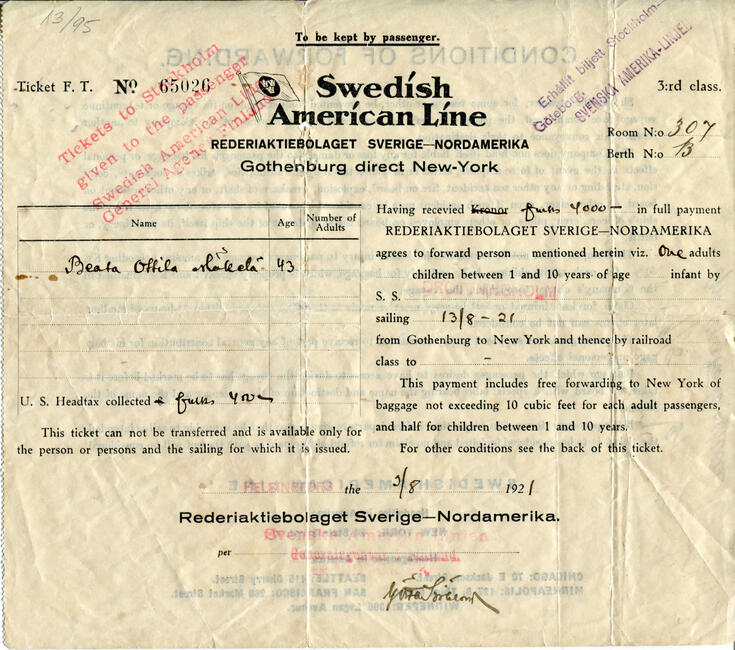 13/95
To be kept by passenger.
Ticket F. T. No 65026
Tickets to Stockholm
given to the passenger
Swedish American Line
General Agency Finland
Swedish
American Line
REDERIAKTIEBOLAGET SVERIGE—NORDAMERIKA
Gothenburg direct New-York
Erhållit biljett Stockholm—
Göteborg.
SVENSKA AMERIKA-LINJEN
3:rd class.
Room N:o 307
Berth N:o B
Name Age Number of Adults
Beata Ottila Mäkelä 43
U. S. Headtax collected
This ticket can not be transferred and is available only for
the person or persons and the sailing for which it is issued.
Having recevied Kronor 4000— in full payment
REDERIAKTIEBOLAGET SVERIGE—NORDAMERIKA
agrees to forward person mentioned herein viz. One adults
children between 1 and 10 years of age infant by
S. S.
sailing 13/8-21
from Gothenburg to New York and thence by railroad
class to -
This payment includes free forwarding to New York of
baggage not exceeding 10 cubic feet for each adult passengers,
and half for children between 1 and 10 years.
For other conditions see the back of this ticket.
HELSINGFORS the 3/8 1921
Rederiaktiebolaget Sverige—Nordamerika.
Svenska Amerika Linien
per